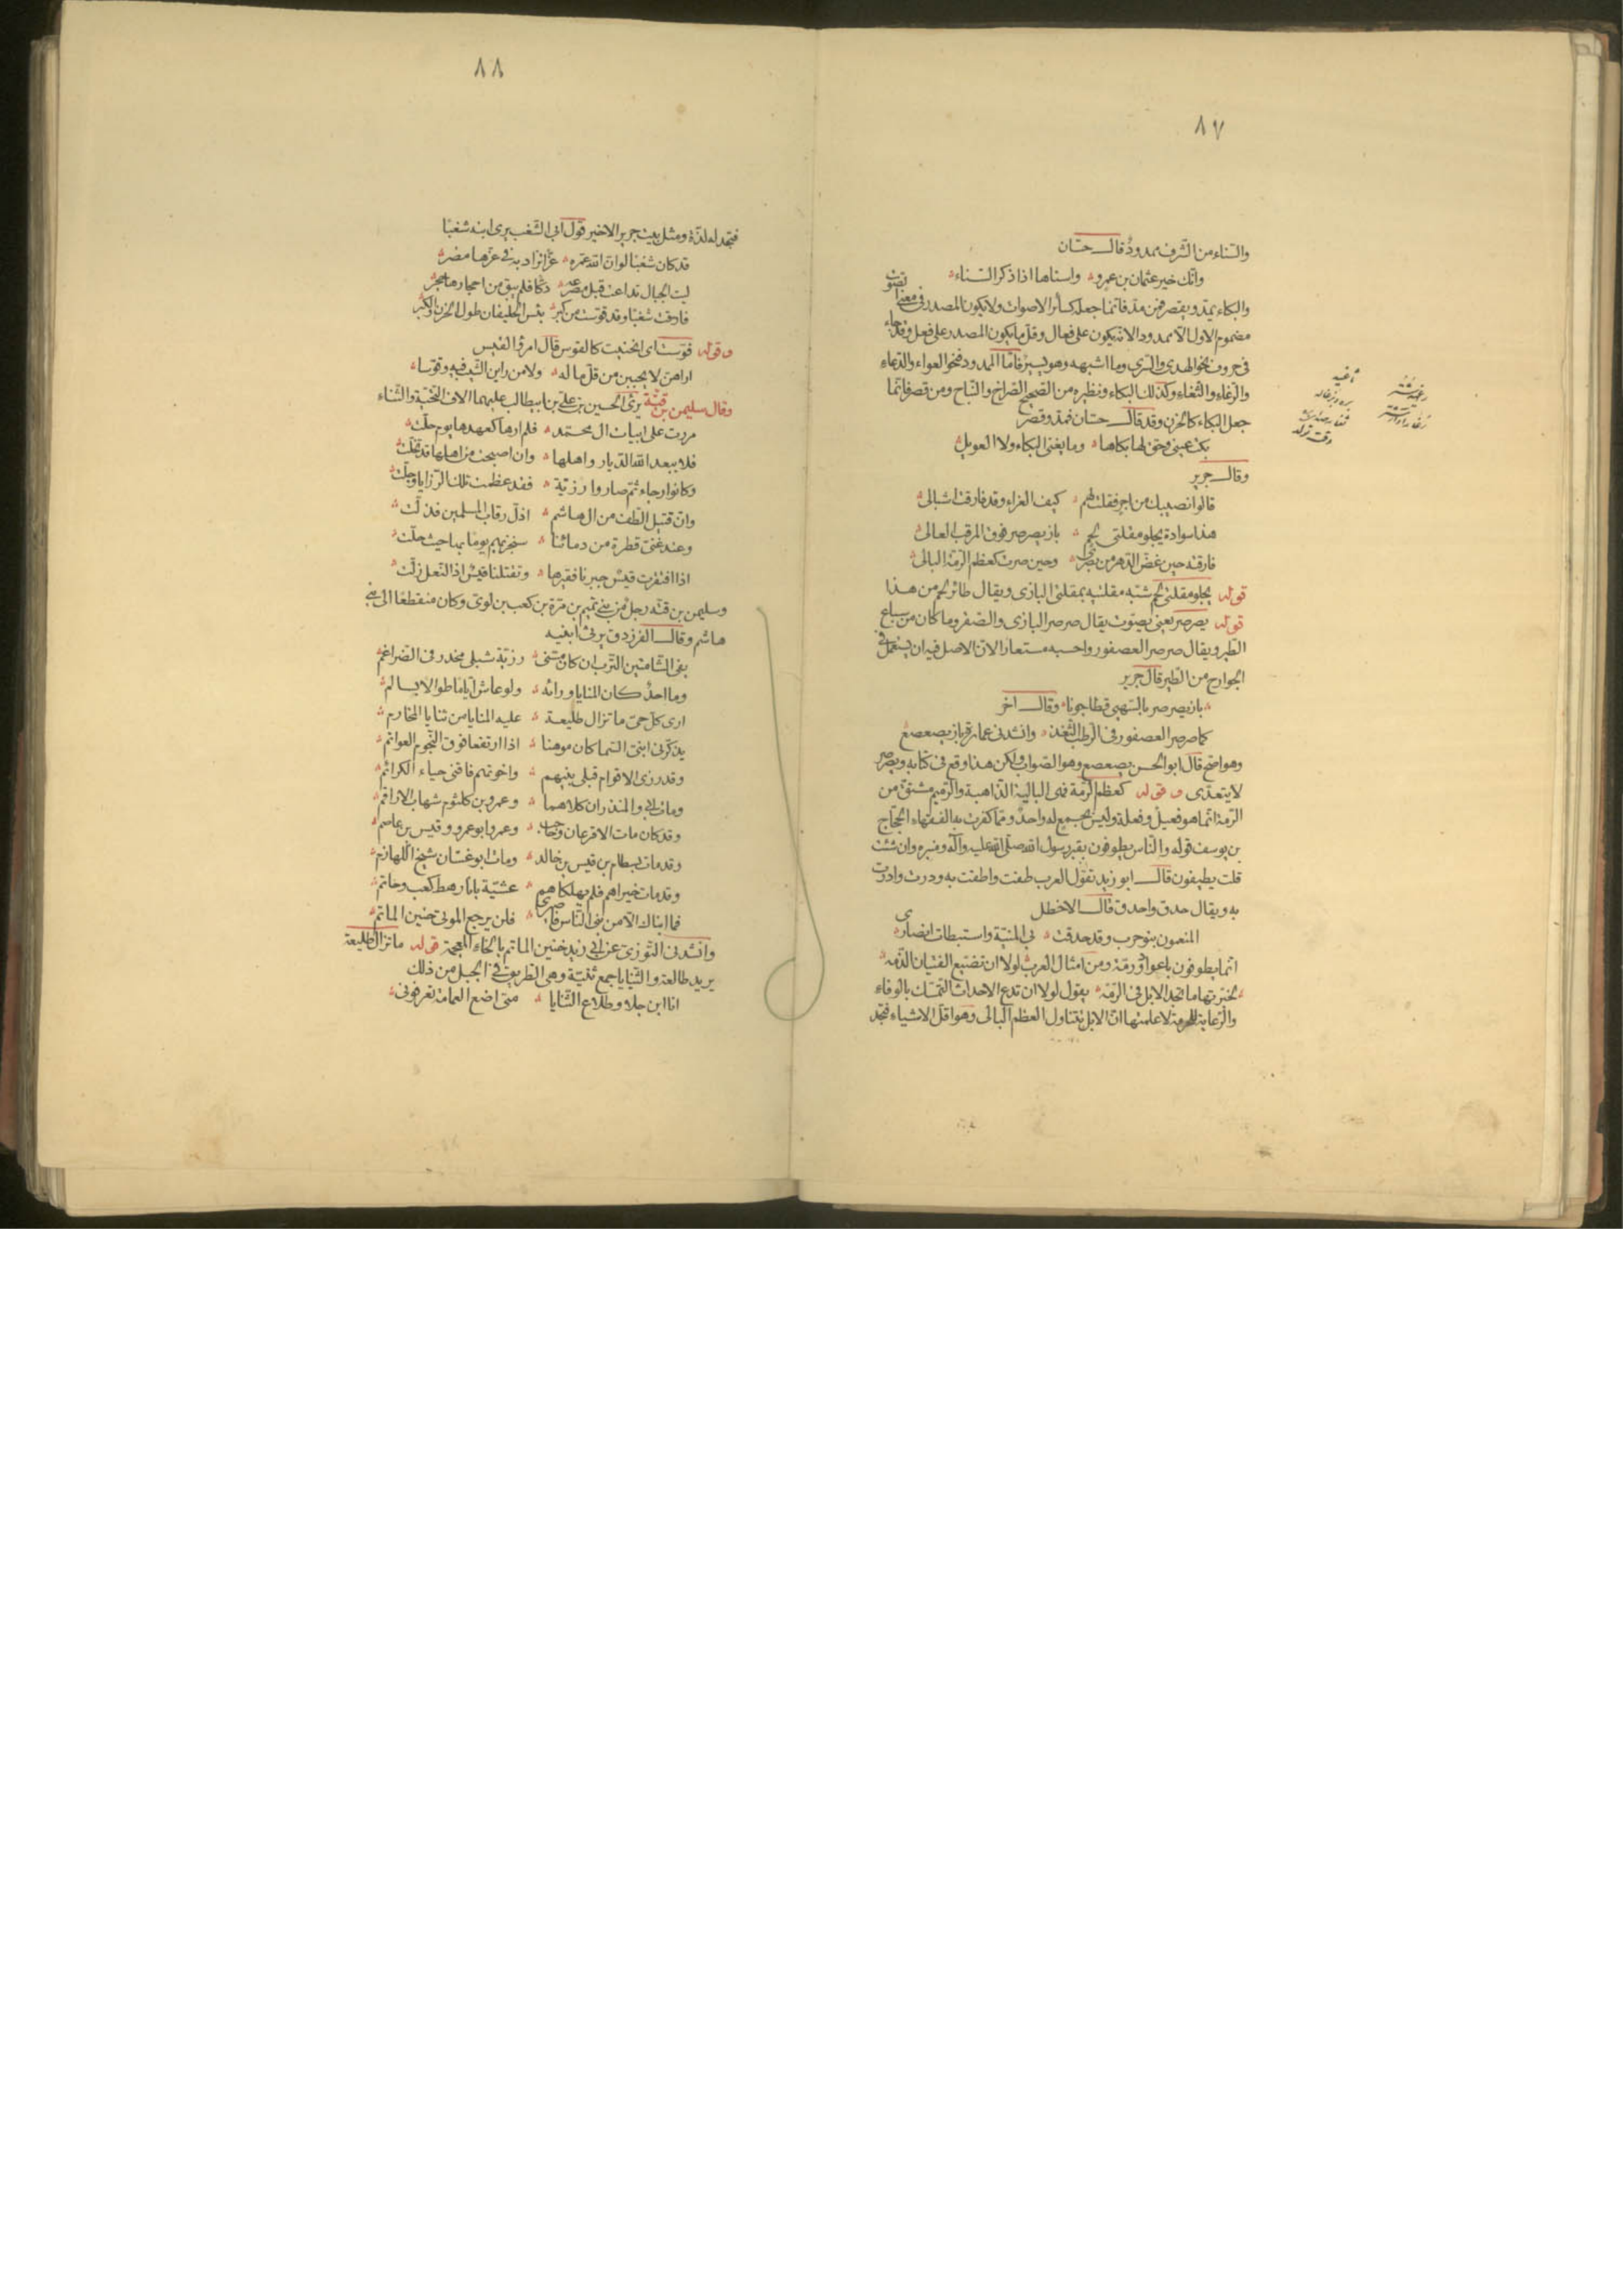 ٨٧
والسّناء من الشّرف ممدودٌ قال حسّان
وانّك خير عثمان بن عمرو واسناها اذا ذكر السّناء
والبكاء يمدّ ويقصر فمن مدّ فانّما جعله كسائر الاصوات ولا يكون المصدر فى معنى
مضموم الاول الا ممدودا لانّه يكون على فعال وقلّ ما يكون المصدر على فعل وقد جاء
فى حروف نحو الهدى والسّرى وما اشبهه وهو يسيرٌ فامّا الممدود فنحو العواء والدّعاء
والرّغاء والثّغاء وكذلك البكاء ونظيره من الصّحيح الصّراخ والنّباح ومن قصر فانّما
جعل البكاء كالحزن وقد قال حسّان فمدّ وقصر
بكت عينى وحقّ لها بكاها وما يغنى البكاء ولا العويل
وقال جرير
قالوا نصيبك من اجر فقلت لهم كيف العزاء وقد فارقت اشبالى
هذا سوادة يجلو مقلتى لحم باز يصرصر فوق المرقب العالى
فارقته حين غضّ الدّهر من بصرى وحين صرت كعظم الرّمّة البالى
قوله يجلو مقلتى لحم شبّه مقلتيه بمقلتى البازى ويقال طائر لحم من هذا
قوله يصرصر يعنى يصوّت يقال صرصر البازى والصّقر وما كان من سباع
الطّير ويقال صرصر العصفور واحسبه مستعارا لانّ الاصل فيه ان يستعمل فى
الجوارح من الطّير قال جرير
باز يصرصر بالسّهبى قطا جونا وقال اخر
كما صرصر العصفور فى الرّطب الثّعد وانشدنى عمارة باز يصعصع
وهو اصحّ قال ابو الحسن يصعصع وهو الصّواب ولكن هذا وقع فى كتابه ويصرصر
لا يتعدّى وقوله كعظم الرّمّة فهى البالية الذّاهبة والرّميم مشتقّ من
الرّمّة انّما هو فعيل وفعلة وليس بجمع له واحدٌ وممّا كفّرت به الفقهاء الحجّاج
بن يوسف قوله والنّاس يطوفون بقبر رسول الله صلّى الله عليه وآله ومنبره وان شئت
قلت يطيفون قال ابو زيد تقول العرب طفت واطفت به ودرت وادرت
به ويقال حدق واحدق قال الاخطل
المنعمون بنو حرب وقد حدقت بى المنيّة واستبطات انصارى
انّما يطوفون باعواد ورمّة ومن امثال العرب لولا ان تضيّع الفتيان الذّمّه
لخبّرتها ما تجد الابل فى الرّمّه يقول لولا ان تدع الاحداث التمسّك بالوفاء
والرّعاية للحرمة لاعلمتها انّ الابل تتناول العظم البالى وهو اقلّ الاشياء فتجد
٨٨
فتجد له لذّة ومثل بيت جرير الاخير قول ابى الشّغب يرثى ابنه شغبًا
قد كان شغب لو انّ الله عمّره عزّا تزاد به فى عزّها مضر
ليت الجبال تداعت قبل مصرعه دكّا فلم يبق من احجارها حجر
فارقت شغبا وقد قوّست من كبر بئس الخليفان طول الحزن والكبر
وقوله قوّست اى انحنيت كالقوس قال امرؤ القيس
اراهنّ لا يحببن من قلّ ماله ولا من راين الشّيب فيه وقوّسا
وقال سليمن بن قتّة يرثى الحسين بن علىّ بن ابيطالب عليهما الاف التّحيّة والثّناء
مررت على ابيات ال محمّد فلم ارها كعهدها يوم حلّت
فلا يبعد الله الدّيار واهلها وان اصبحت من اهلها قد تخلّت
وكانوا رجاء ثمّ صاروا رزيّة فقد عظمت تلك الرّزايا وجلّت
وانّ قتيل الطّفّ من ال هاشم اذلّ رقاب المسلمين فذلّت
وعند غنىّ قطرة من دمائنا سنجزيهم يوما بها حيث حلّت
اذا افتقرت قيسٌ جبرنا فقيرها وتقتلنا قيس اذا النّعل زلّت
وسليمن بن قتّه رجل من بنى تيم بن مرّة بن كعب بن لوىّ وكان منقطعًا الى بنى
هاشم وقال الفرزدق يرثى ابنيه
بفى الشّامتين التّرب ان كان مسّنى رزيّة شبلى مخدر فى الضّراغم
وما احدٌ كان المنايا ورائه ولو عاش ايّاما طوالا بسالم
ارى كلّ حىّ ما تزال طليعة عليه المنايا من ثنايا المخارم
يذكّرنى ابنى السّماكان موهنا اذا ارتفعا فوق النّجوم العواتم
وقد رزى الاقوام قبلى بنيهم واخوتهم فاقنى حياء الكرائم
ومات ابى والمنذران كلاهما وعمرو بن كلثوم شهاب الاراقم
وقد كان مات الاقرعان وحاجب وعمرو ابو عمرو وقيس بن عاصم
وقد مات بسطام بن قيس بن خالد ومات ابو غسّان شيخ اللّهازم
وقد مات خيراهم فلم يهلكاهم عشيّة بانا رهط كعب وحاتم
فما ابناك الا من بنى النّاس فاصبرى فلن يرجع الموتى حنين الماتم
وانشدنى التّوزىّ عن ابى زيد خنين الماتم بالخاء المعجمة قوله ما تزال طليعة
يريد طالعة والثّنايا جمع ثنيّة وهى الطّريق فى الجبل من ذلك
انا ابن جلا وطلاع الثّنايا متى اضع العمامة تعرفونى